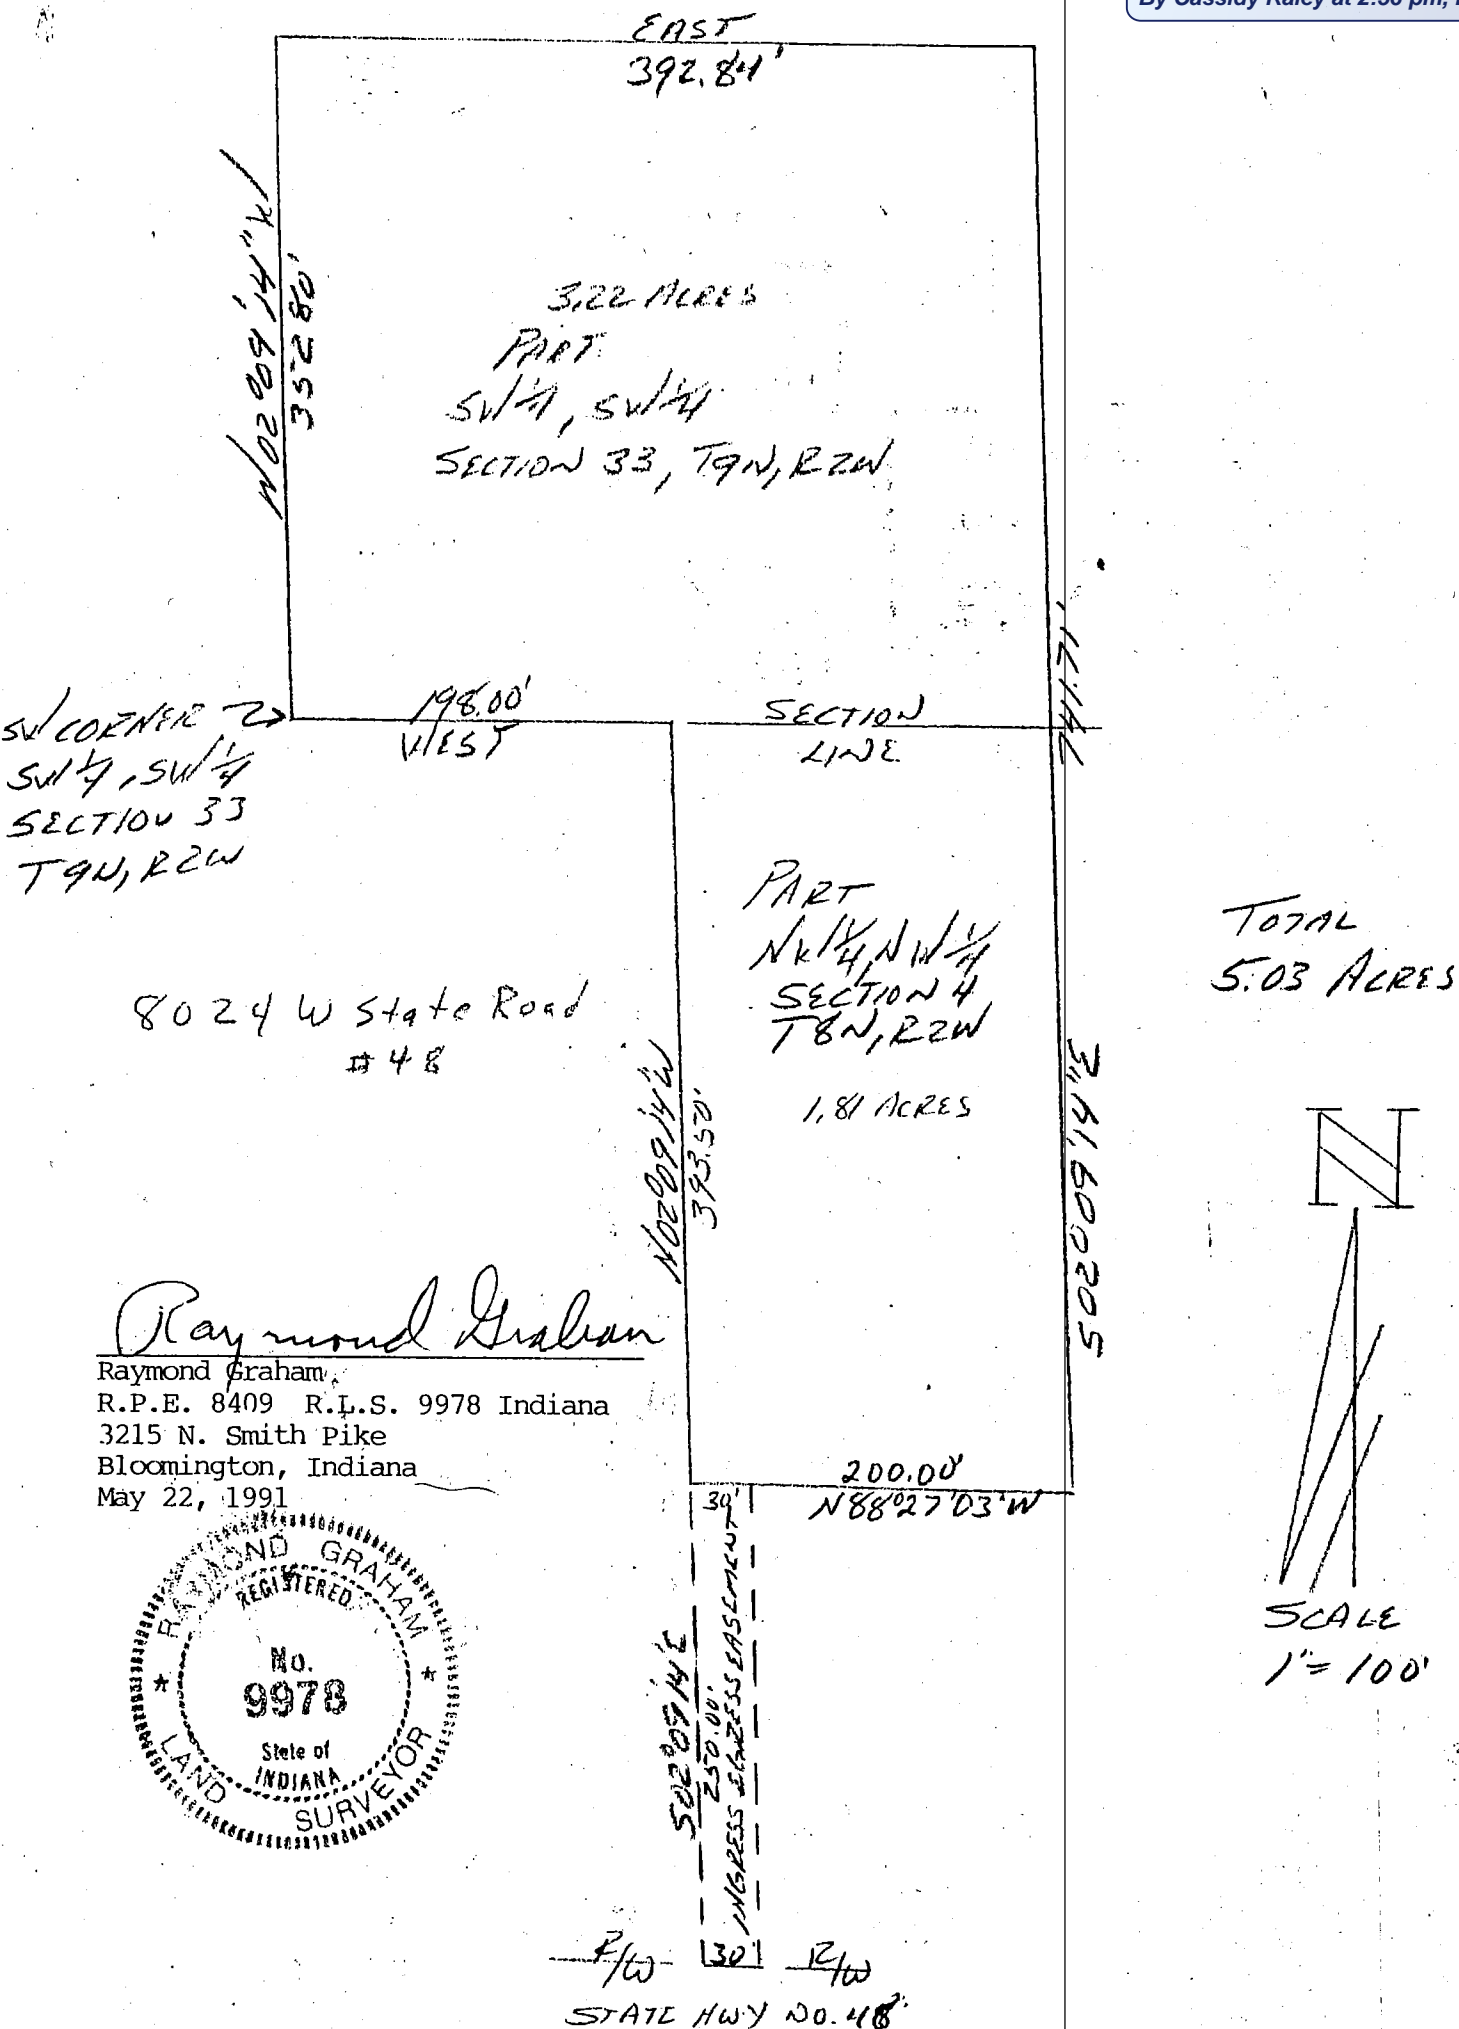 By Cassidy Raley at 2:50 pm,
EAST
392.84'
N02°09'14"W
352.80'
3.22 ACRES
PART
SW 1/4, SW 1/4
SECTION 33, T9N, R2W
741.71'
198.00'
WEST
SECTION
LINE
SW CORNER
SW 1/4, SW 1/4
SECTION 33
T9N, R2W
PART
NW 1/4, NW 1/4
SECTION 4
T8N, R2W
1.81 ACRES
TOTAL
5.03 ACRES
8024 W State Road
#48
N02°09'14"W
393.50'
S02°09'14"E
N
SCALE
1"=100'
Raymond Graham
Raymond Graham
R.P.E. 8409 R.L.S. 9978 Indiana
3215 N. Smith Pike
Bloomington, Indiana
May 22, 1991
200.00'
N88°27'03"W
30'
RAYMOND GRAHAM
REGISTERED
No.
9978
State of
INDIANA
* LAND SURVEYOR *
S02°09'14"E
250.00'
INGRESS EGRESS EASEMENT
R/W 30' R/W
STATE HWY NO. 48